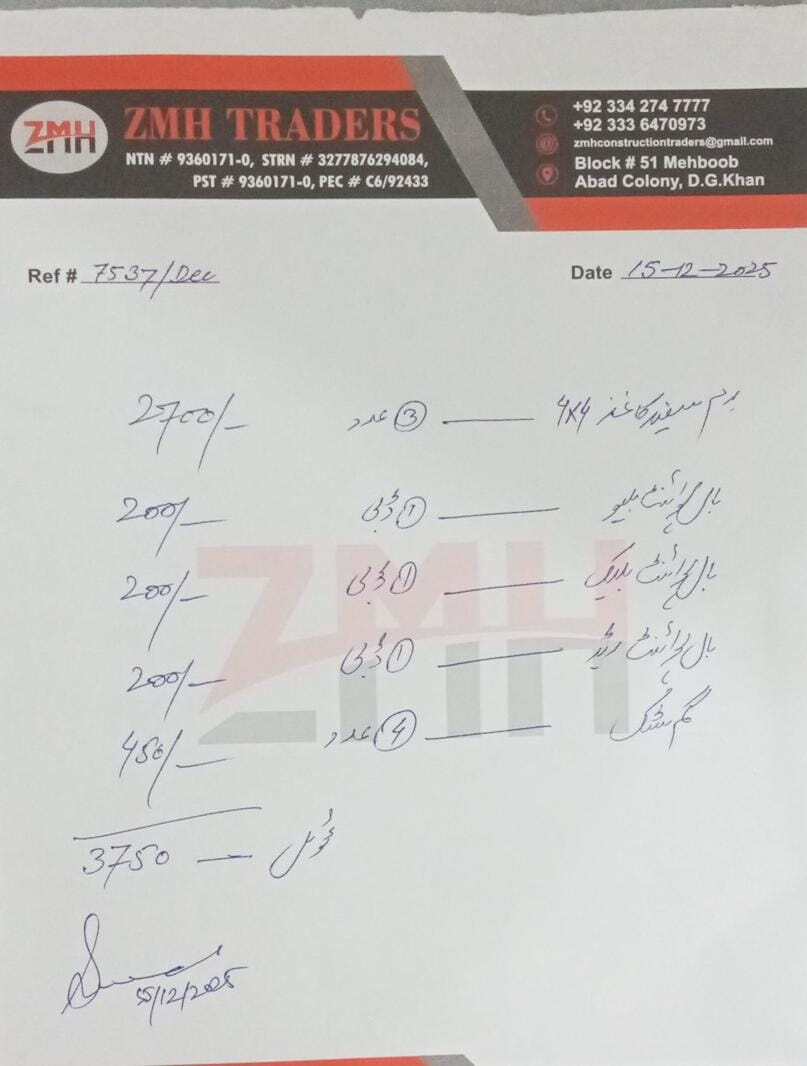 ZMH
ZMH TRADERS
NTN # 9360171-0, STRN # 3277876294084,
PST # 9360171-0, PEC # C6/92433
+92 334 274 7777
+92 333 6470973
zmhconstructiontraders@gmail.com
Block # 51 Mehboob
Abad Colony, D.G.Khan
Ref # 7537/Dec
Date 15-12-2025
رم سفید کاغذ 4x4 — 3 عدد 2700/-
بال پوائنٹ بلیو — 1 ڈبی 200/-
بال پوائنٹ بلیک — 1 ڈبی 200/-
بال پوائنٹ ریڈ — 1 ڈبی 200/-
گم سٹک — 4 عدد 450/-
ٹوٹل — 3750
15/12/2025
ZMH